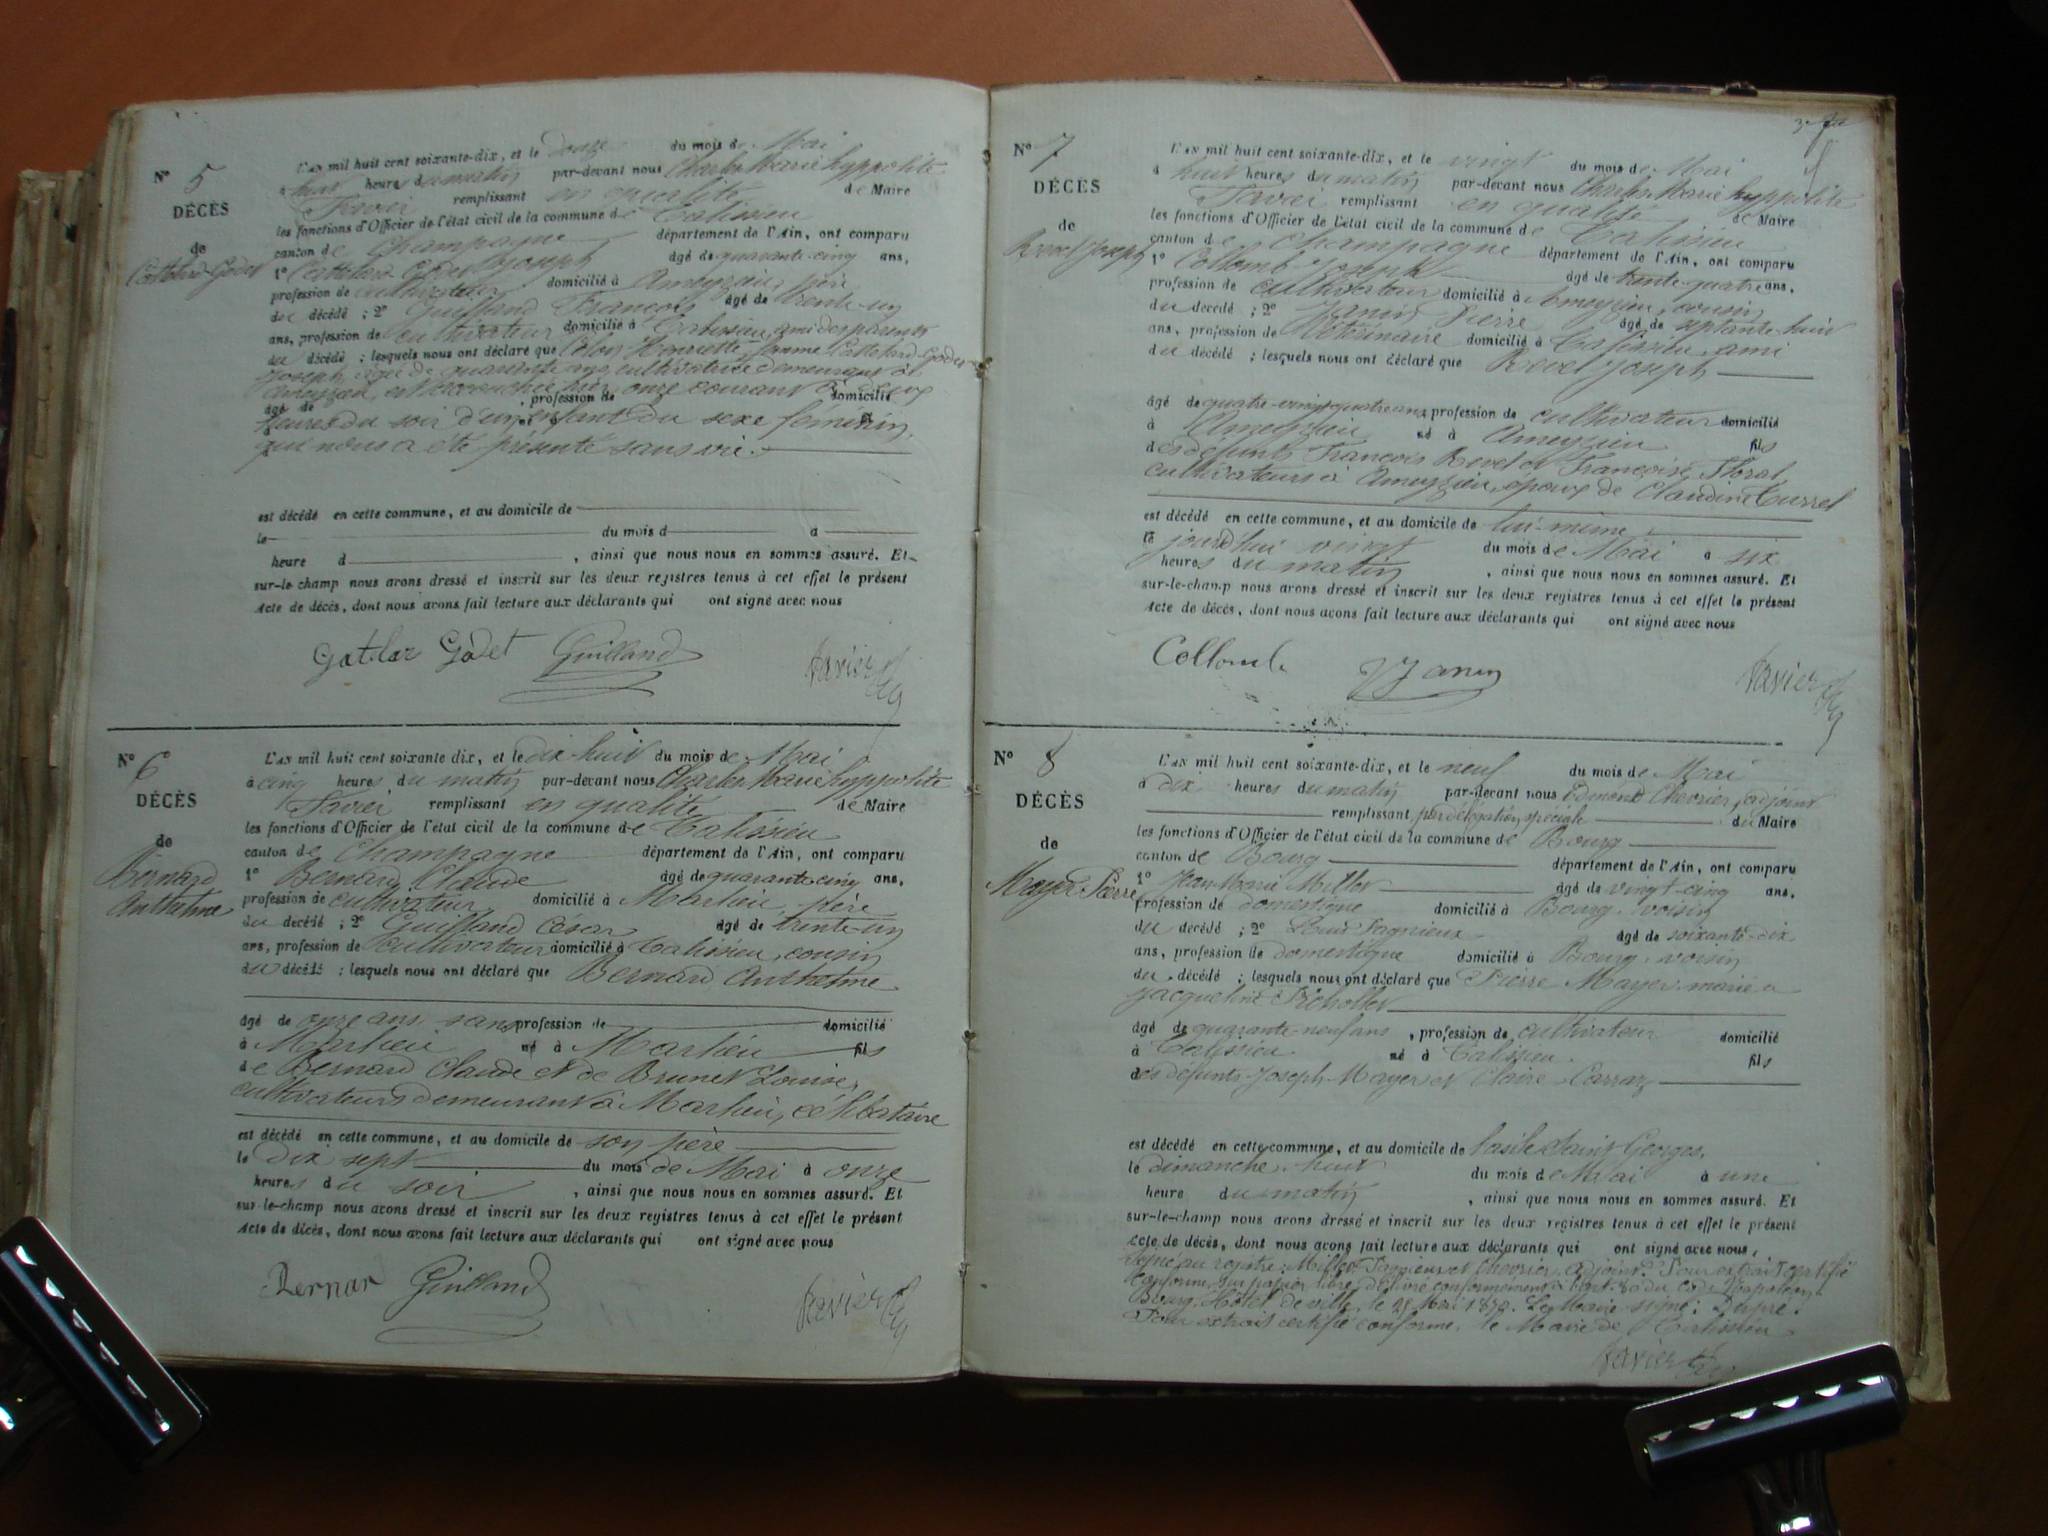 N° 5
DÉCÈS
de
Cattelard-Godet
L'an mil huit cent soixante-dix, et le douze du mois de Mai
à huit heures du matin par-devant nous Charles Marie hyppolite
Favier remplissant en qualité de Maire
les fonctions d'Officier de l'état civil de la commune de Talissieu
canton de Champagne département de l'Ain, ont comparu
1° Godet Joseph âgé de quarante-cinq ans,
profession de cultivateur domicilié à Ameyzieu, père
du décédé ; 2° Guilland François âgé de trente-un
ans, profession de cultivateur domicilié à Talissieu, ami des parents
du décédé ; lesquels nous ont déclaré que Henriette, femme Godet
Joseph, âgée de quarante ans, cultivatrice demeurant à
Ameyzieu, est accouchée hier, onze courant à deux
âgé de , profession de domicilié
heures du soir d'un enfant du sexe féminin,
qui nous a été présenté sans vie.
est décédé en cette commune, et au domicile de
le du mois d à
heure d , ainsi que nous nous en sommes assuré. Et
sur-le-champ nous avons dressé et inscrit sur les deux registres tenus à cet effet le présent
Acte de décès, dont nous avons fait lecture aux déclarants qui ont signé avec nous
Gatlar Godet Guilland Favier
N° 6
DÉCÈS
de
Bernard
Anthelme
L'an mil huit cent soixante dix, et le dix-huit du mois de Mai
à cinq heures du matin par-devant nous Charles Marie hyppolite
Favier remplissant en qualité de Maire
les fonctions d'Officier de l'état civil de la commune de Talissieu
canton de Champagne département de l'Ain, ont comparu
1° Bernard Claude âgé de quarante-cinq ans,
profession de cultivateur domicilié à Marlieu, père
du décédé ; 2° Guilland César âgé de trente-un
ans, profession de cultivateur domicilié à Talissieu, cousin
du décédé ; lesquels nous ont déclaré que Bernard Anthelme
âgé de onze ans, sans profession de domicilié
à Marlieu né à Marlieu fils
de Bernard Claude et de Brunet Louise,
cultivateurs demeurant à Marlieu, célibataire
est décédé en cette commune, et au domicile de son père
le dix sept du mois de Mai à onze
heures du soir , ainsi que nous nous en sommes assuré. Et
sur-le-champ nous avons dressé et inscrit sur les deux registres tenus à cet effet le présent
Acte de décès, dont nous avons fait lecture aux déclarants qui ont signé avec nous
Bernar Guilland Favier
N° 7
DÉCÈS
de
Revel Joseph
L'an mil huit cent soixante-dix, et le vingt du mois de Mai
à huit heures du matin par-devant nous Charles Marie hyppolite
Favier remplissant en qualité de Maire
les fonctions d'Officier de l'état civil de la commune de Talissieu
canton de Champagne département de l'Ain, ont comparu
1° Collomb Joseph âgé de trente-quatre ans,
profession de cultivateur domicilié à Ameyzieu, cousin
du décédé ; 2° Janin Pierre âgé de septante-huit
ans, profession de Vétérinaire domicilié à Talissieu, ami
du décédé ; lesquels nous ont déclaré que Revel Joseph
âgé de quatre-vingt-quatre ans, profession de cultivateur domicilié
à Ameyzieu né à Ameyzieu fils
des défunts François Revel et Françoise Floral,
cultivateurs à Ameyzieu, époux de Claudine Turrel
est décédé en cette commune, et au domicile de lui-même
le jourd'hui vingt du mois de Mai à six
heures du matin , ainsi que nous nous en sommes assuré. Et
sur-le-champ nous avons dressé et inscrit sur les deux registres tenus à cet effet le présent
Acte de décès, dont nous avons fait lecture aux déclarants qui ont signé avec nous
Collomb Janin Favier
N° 8
DÉCÈS
de
Mayer Pierre
L'an mil huit cent soixante-dix, et le neuf du mois de Mai
à dix heures du matin par-devant nous Edmond Chevrier, adjoint
remplissant par délégation spéciale du Maire
les fonctions d'Officier de l'état civil de la commune de Bourg
canton de Bourg département de l'Ain, ont comparu
1° Jean-Marie Millet âgé de vingt-cinq ans,
profession de domestique domicilié à Bourg, voisin
du décédé ; 2° Louis âgé de soixante-dix
ans, profession de domestique domicilié à Bourg, voisin
du décédé ; lesquels nous ont déclaré que Pierre Mayer, marié à
Jacqueline
âgé de quarante-neuf ans , profession de cultivateur domicilié
à Talissieu né à Talissieu. fils
des défunts Joseph Mayer et Claire Carraz
est décédé en cette commune, et au domicile de l'asile Saint Georges,
le dimanche, huit du mois de Mai à une
heure du matin , ainsi que nous nous en sommes assuré. Et
sur-le-champ nous avons dressé et inscrit sur les deux registres tenus à cet effet le présent
Acte de décès, dont nous avons fait lecture aux déclarants qui ont signé avec nous,
Signé au registre : Millet, et Chevrier, adjoint. Pour extrait certifié
conforme, sur papier libre, délivré conformément à l'art. 80 du Code Napoléon.
Bourg, Hôtel de ville, le 28 Mai 1870. Le Maire signé :
Pour extrait certifié conforme, le Maire de Talissieu
Favier